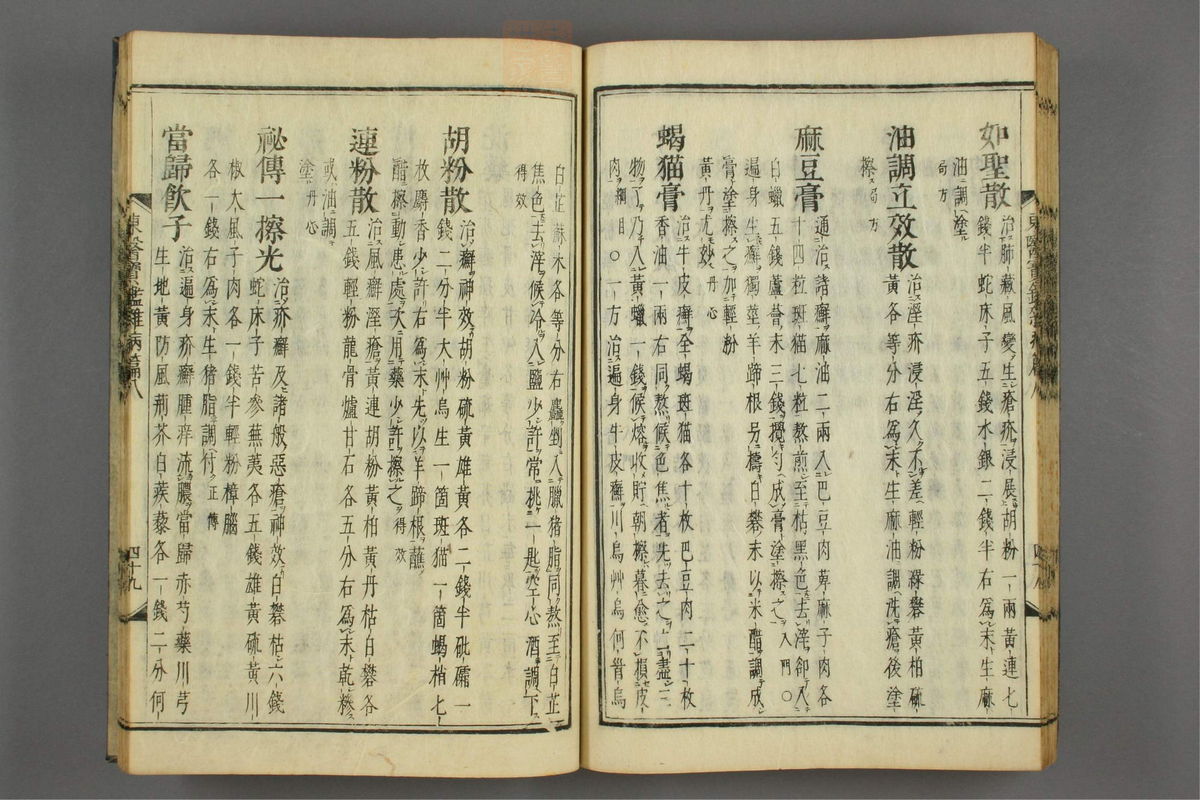 如聖散 治肺藏風變生瘡疥浸展胡粉一兩黃連七
錢半蛇床子五錢水銀二錢半右爲末生麻
油調塗
局方
油調立效散 治溼疥浸淫久不差輕粉綠礬黃柏硫
黃各等分右爲末生麻油調洗瘡後塗
擦局方
麻豆膏 通治諸癬麻油二兩入巴豆肉萆麻子肉各
十四粒斑猫七粒熬煎至枯黑色去滓卻入
白蠟五錢蘆薈末三錢攪勻成膏塗擦之入門〇
遍身生癬獨莖羊蹄根另擣白礬末以米醋調成
膏塗擦之加輕粉
黃丹尤妙丹心
蝎猫膏 治牛皮癬全蝎斑猫各十枚巴豆肉二十枚
香油一兩右同熬候色焦者先去之去盡三
物了乃入黃蠟一錢候熔收貯朝擦暮愈不損皮
肉綱目〇一方治遍身牛皮癬川烏艸烏何首烏
白芷蘇木各等分右麤剉入臘猪脂同熬至白芷
焦色去滓候冷入鹽少許常挑一匙空心酒調下
得效
胡粉散 治癬神效胡粉硫黃雄黃各二錢半砒礵一
錢二分半大艸烏生一箇斑猫一箇蝎梢七
枚麝香少許右爲末先以羊蹄根蘸
醋擦動患處次用藥少許擦之得效
連粉散 治風癬溼瘡黃連胡粉黃柏黃丹枯白礬各
五錢輕粉龍骨爐甘石各五分右爲末乾糝
或油調
塗丹心
祕傳一擦光 治疥癬及諸般惡瘡神效白礬枯六錢
蛇床子苦參蕪荑各五錢雄黃硫黃川
椒大風子肉各一錢半輕粉樟腦
各一錢右爲末生猪脂調付正傳
當歸飲子 治遍身疥癬腫痒流膿當歸赤芍藥川芎
生地黃防風荊芥白蒺藜各一錢二分何
東醫寶鑑雜病篇八
四十九